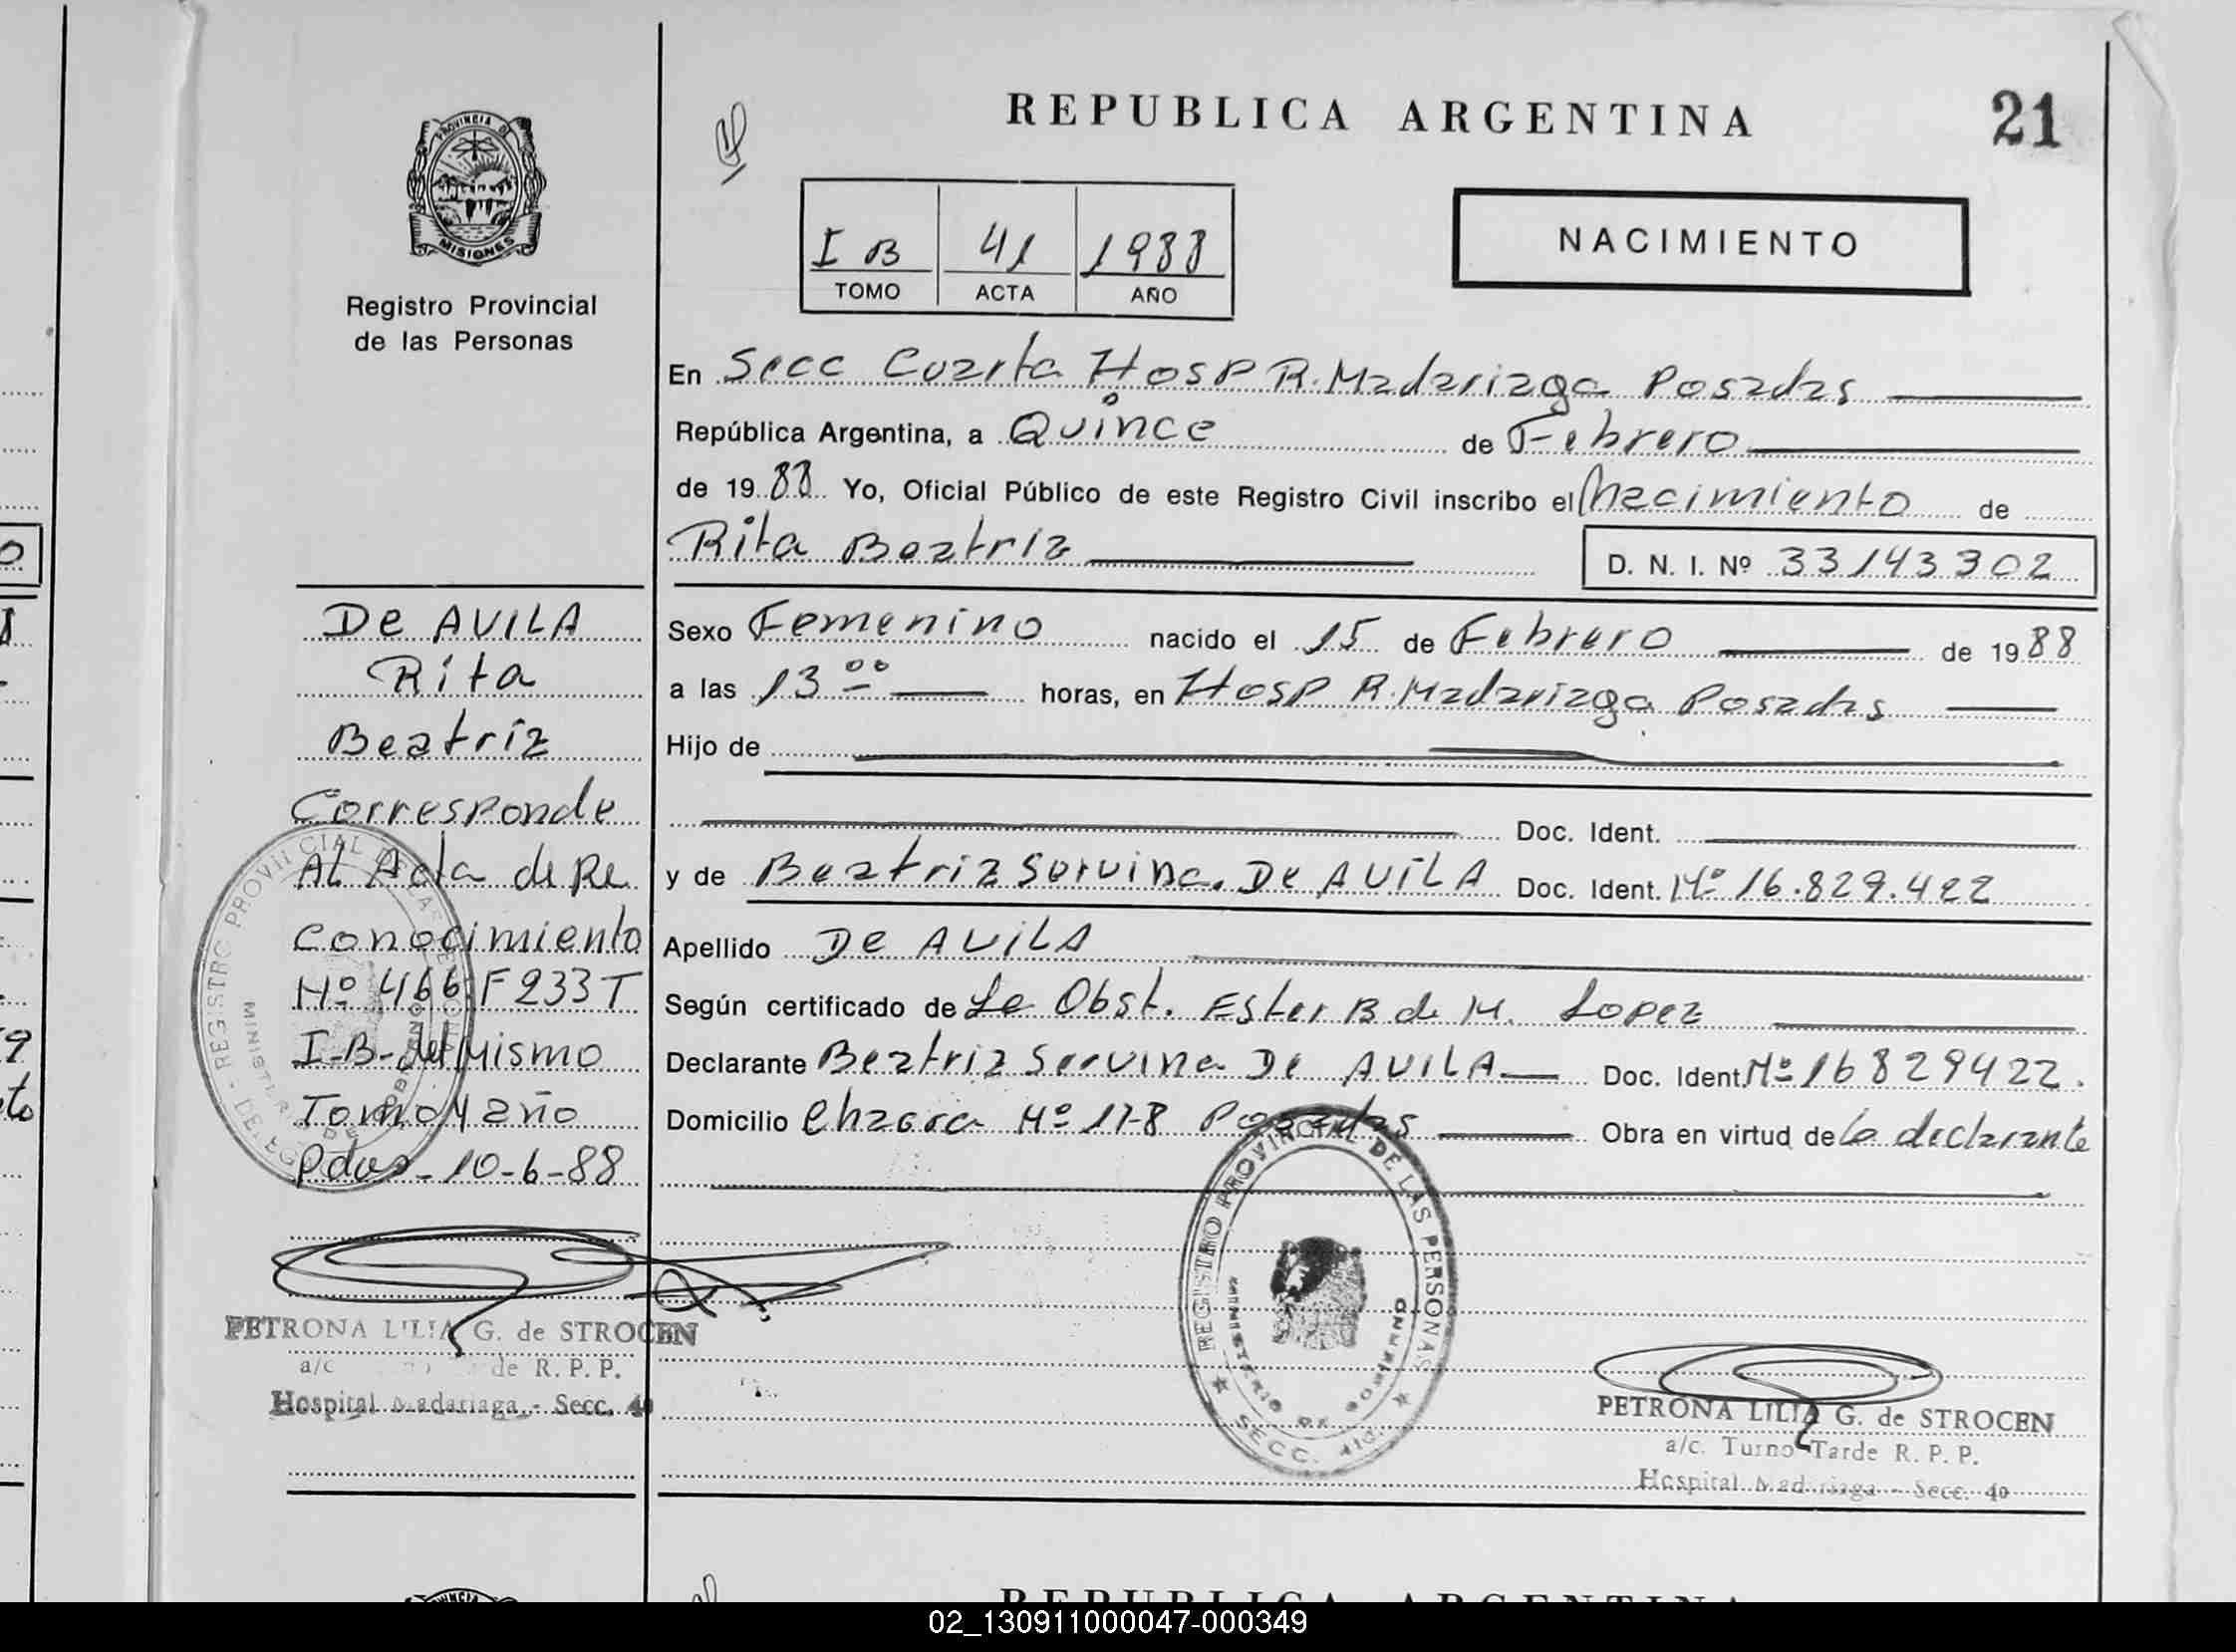 REPUBLICA ARGENTINA
21
PROVINCIA DE
MISIONES
Registro Provincial
de las Personas
I B 41 1988
TOMO ACTA AÑO
NACIMIENTO
En Secc Cuarta Hosp R. Madariaga Posadas
República Argentina, a Quince de Febrero
de 1988 Yo, Oficial Público de este Registro Civil inscribo el Nacimiento de
Rita Beatriz
D. N. I. Nº 33143302
Sexo Femenino nacido el 15 de Febrero de 1988
a las 13 00 horas, en Hosp R. Madariaga Posadas
Hijo de
Doc. Ident.
y de Beatriz Servina De AVILA Doc. Ident. Nº 16.829.422
Apellido De AVILA
Según certificado de La Obst. Ester B de M. Lopez
Declarante Beatriz Servina De AVILA Doc. Ident Nº 16829422.
Domicilio Chacra Nº 11-8 Posadas Obra en virtud de la declarante
De AVILA
Rita
Beatriz
Corresponde
Al Acta de Re
conocimiento
Nº 466 F 233 T
I-B- del Mismo
Tomo y año
Pdas- 10-6-88
PETRONA LILIA G. de STROCEN
a/c de R. P. P.
Hospital Madariaga - Secc. 4a
REGISTRO PROVINCIAL DE LAS PERSONAS
MINISTERIO DE GOBIERNO
SECC. 4ta.
PETRONA LILIA G. de STROCEN
a/c. Turno Tarde R. P. P.
Hospital Madariaga - Secc. 4a
REPUBLICA ARGENTINA
02_130911000047-000349